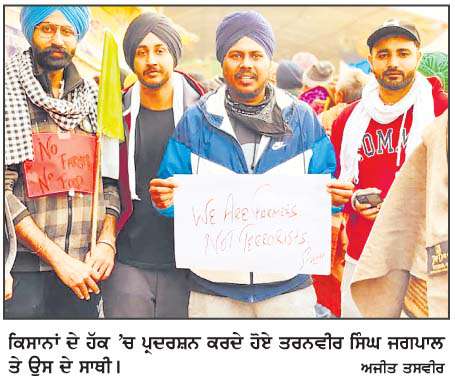 NO FARMS
NO FOOD
WE ARE FARMERS
NOT TERRORISTS.
ROMA
ਕਿਸਾਨਾਂ ਦੇ ਹੱਕ 'ਚ ਪ੍ਰਦਰਸ਼ਨ ਕਰਦੇ ਹੋਏ ਤਰਨਵੀਰ ਸਿੰਘ ਜਗਪਾਲ
ਤੇ ਉਸ ਦੇ ਸਾਥੀ।
ਅਜੀਤ ਤਸਵੀਰ